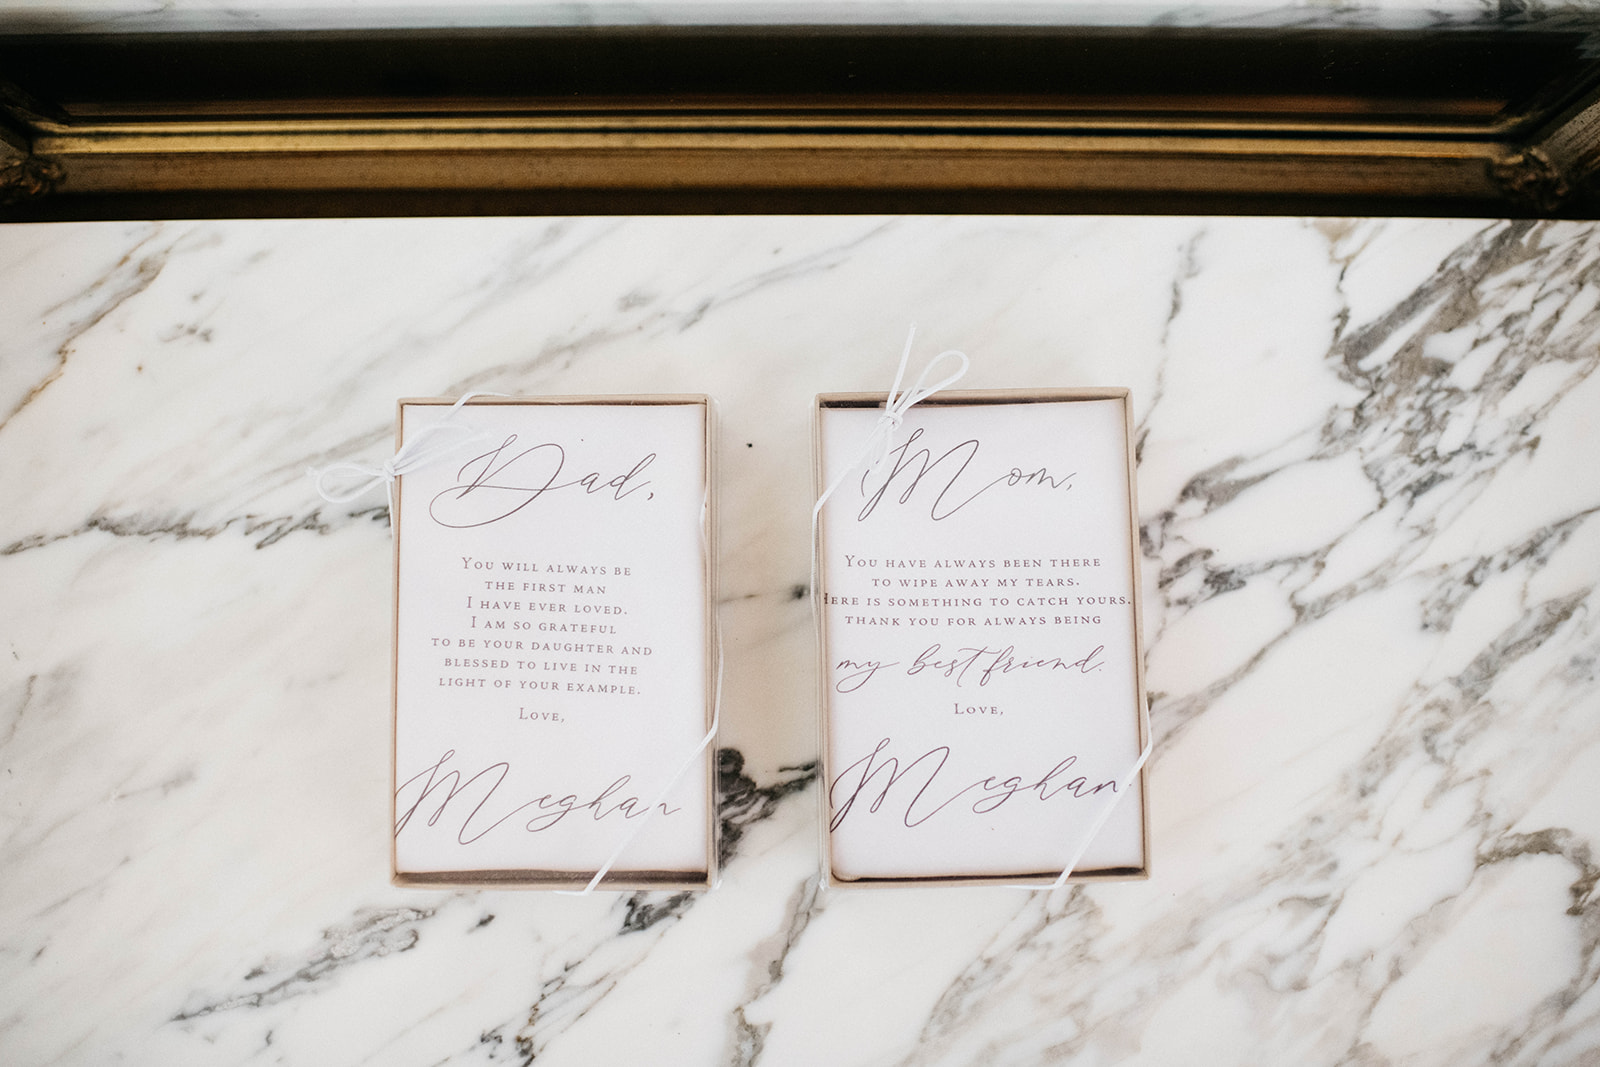 Dad,
You will always be
the first man
I have ever loved.
I am so grateful
to be your daughter and
blessed to live in the
light of your example.
Love,
Meghan
Mom,
You have always been there
to wipe away my tears.
Here is something to catch yours.
thank you for always being
my best friend.
Love,
Meghan